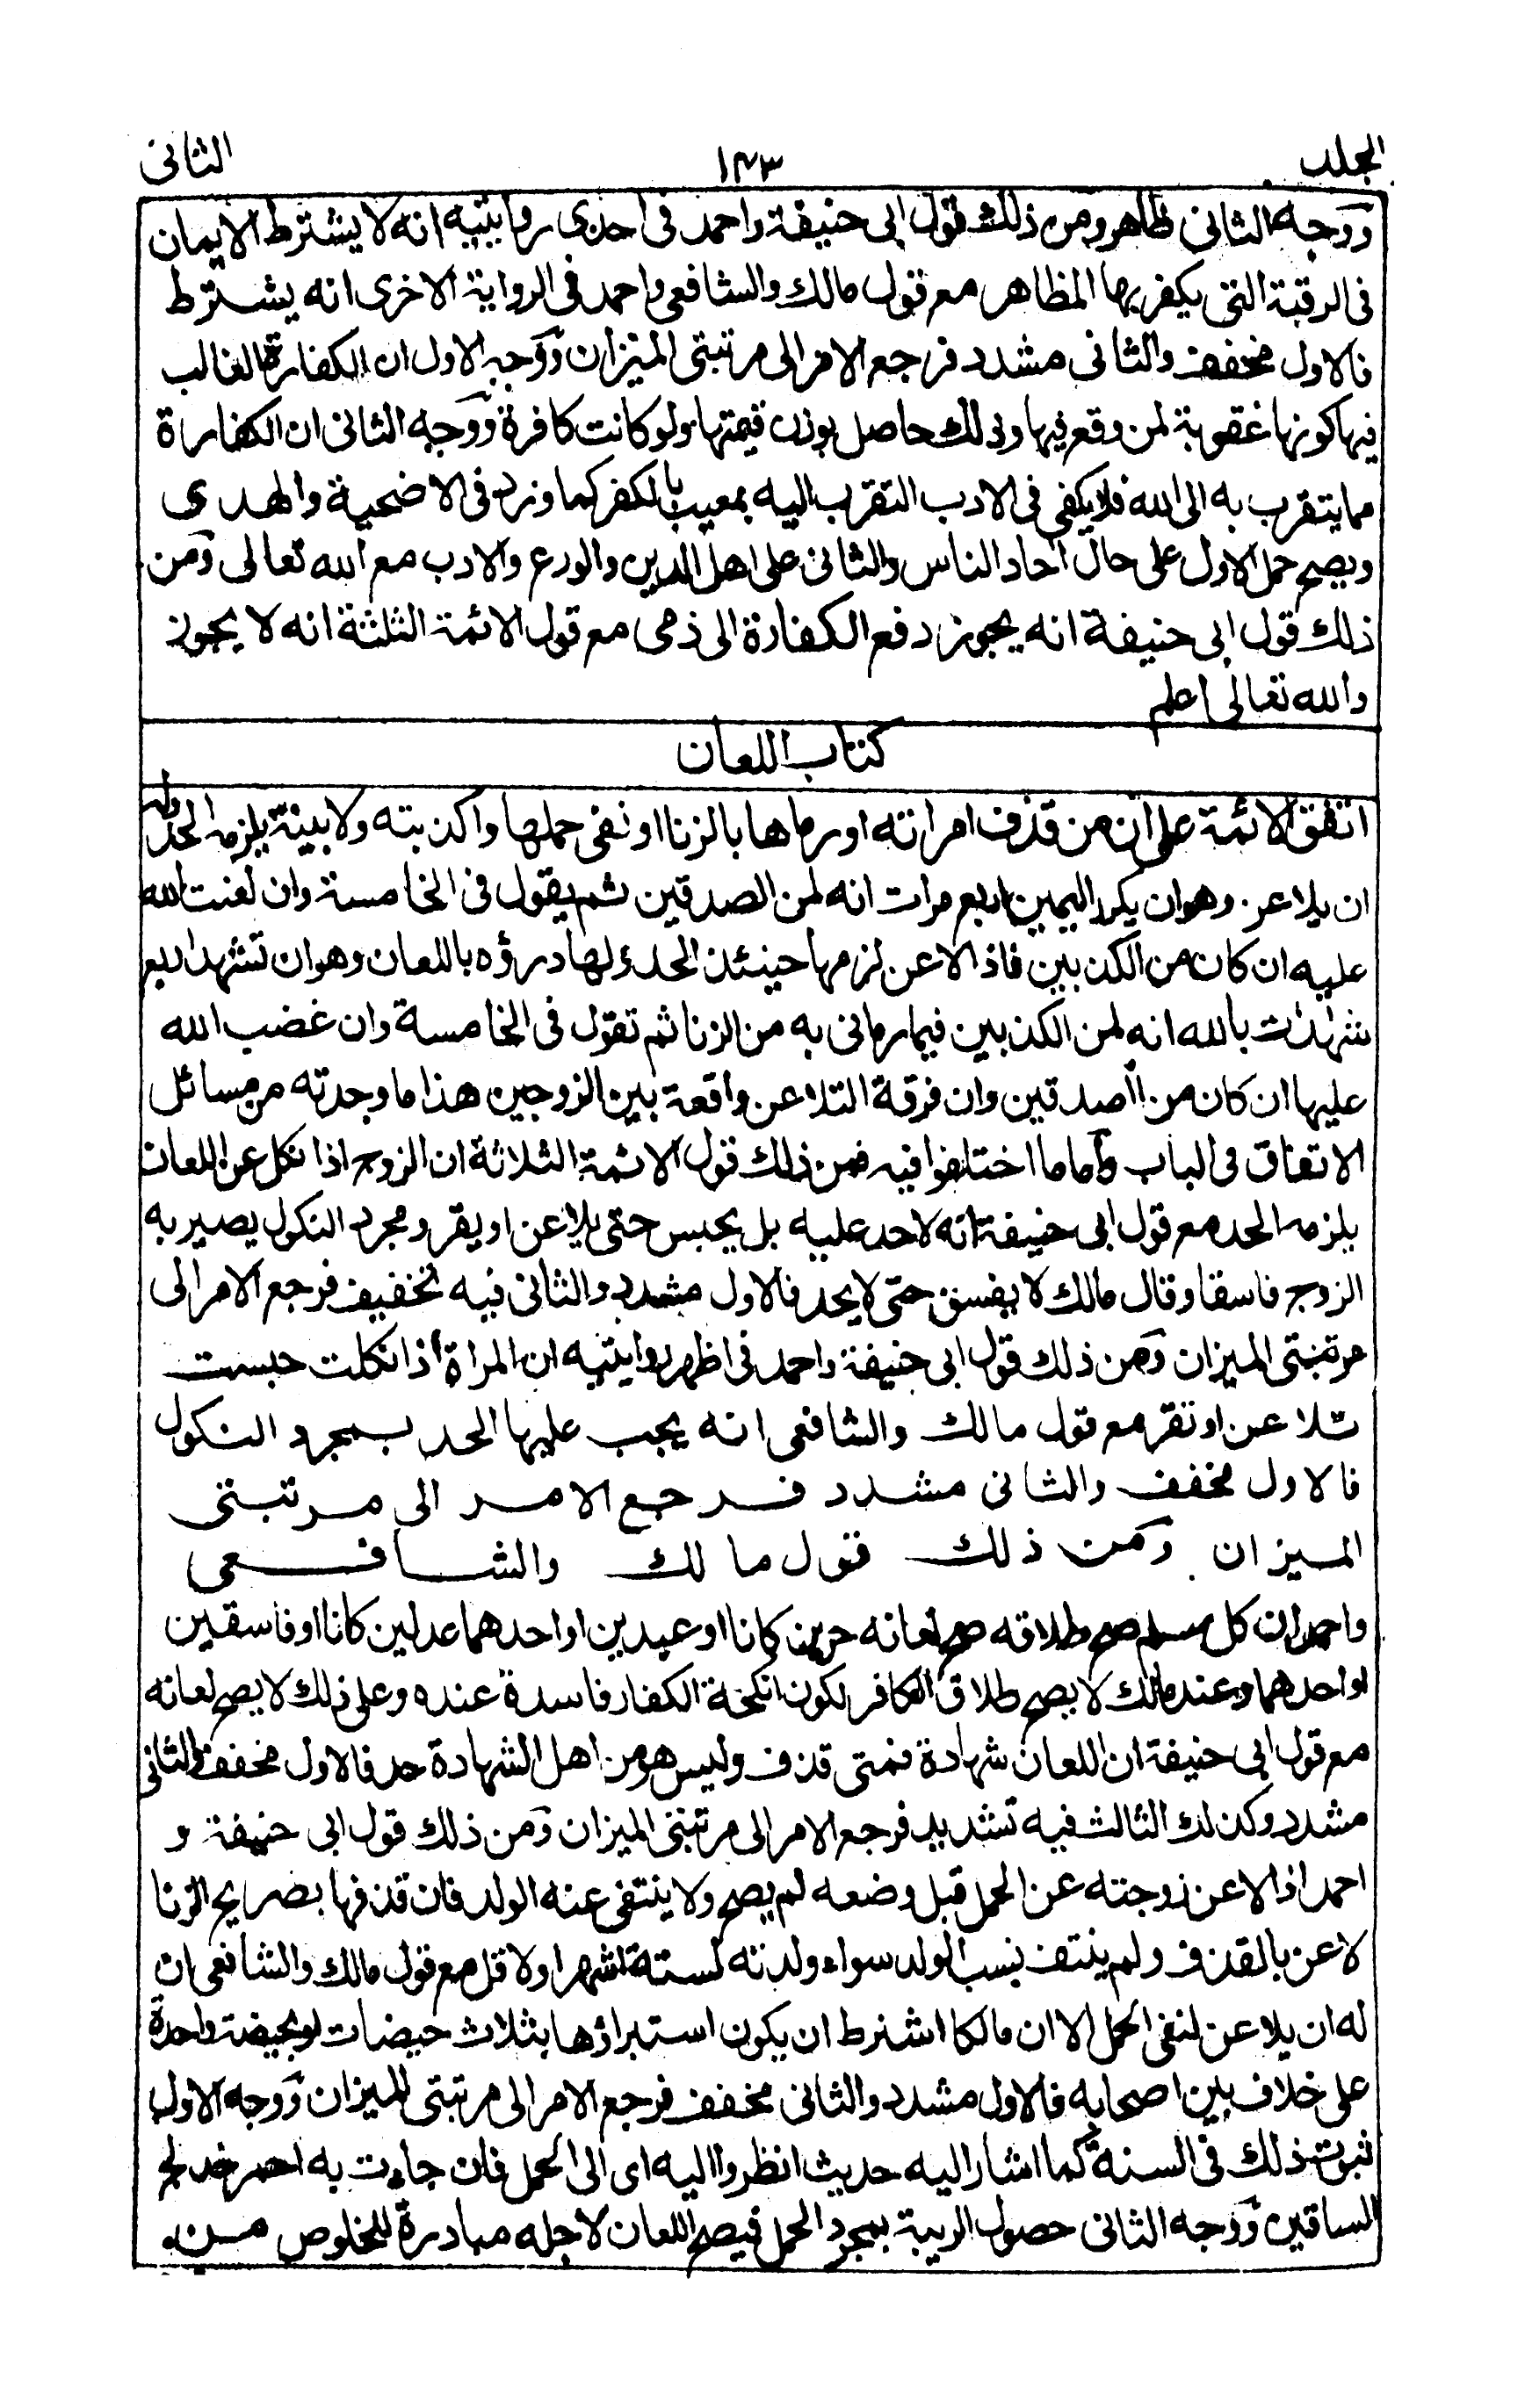 الجلد ١٤٣ الثانى
ووجه الثانى ظاهر ومن ذلك قول ابى حنيفة واحمد فى احدى روايتيه انه لا يشترط الايمان
فى الرقبة التى يكفر بها المظاهر مع قول مالك والشافعى واحمد فى الرواية الاخرى انه يشترط
فالاول مخفف والثانى مشدد فرجع الامر الى مرتبتى الميزان ووجه الاول ان الكفارة الغالب
فيها كونها عقوبة لمن وقع فيها وذلك حاصل بوزن قيمتها ولو كانت كافرة ووجه الثانى ان الكفارة
مما يتقرب به الى الله فلا يكفى فى الادب التقرب اليه بمعيب بالكفر كما ورد فى الاضحية والهدى
ويصح حمل الاول على حال آحاد الناس والثانى على اهل الدين والورع والادب مع الله تعالى ومن
ذلك قول ابى حنيفة انه يجوز دفع الكفارة الى ذمى مع قول الائمة الثلثة انه لا يجوز
والله تعالى اعلم
كتاب اللعان
اتفق الائمة على ان من قذف امراته او رماها بالزنا او نفى حملها واكذبته ولا بينة يلزمه الحد وله
ان يلاعن وهو ان يكرر اليمين اربع مرات انه لمن الصدقين ثم يقول فى الخامسة وان لعنت الله
عليه ان كان من الكذبين فاذا لاعن لزمها حينئذ الحد ولها درؤه باللعان وهو ان تشهد اربع
شهدت بالله انه لمن الكذبين فيما رمانى به من الزنا ثم تقول فى الخامسة وان غضب الله
عليها ان كان من الصدقين وان فرقة التلاعن واقعة بين الزوجين هذا ما وجدته من مسائل
الاتفاق فى الباب واما ما اختلفوا فيه فمن ذلك قول الائمة الثلاثة ان الزوج اذا نكل عن اللعان
يلزمه الحد مع قول ابى حنيفة انه لا حد عليه بل يحبس حتى يلاعن او يقر ومجرد النكول يصير به
الزوج فاسقا وقال مالك لا يفسق حتى لا يحد فالاول مشدد والثانى فيه تخفيف فرجع الامر الى
مرتبتى الميزان ومن ذلك قول ابى حنيفة واحمد فى اظهر روايتيه ان المراة اذا نكلت حبست
تلاعن او تقر مع قول مالك والشافعى انه يجب عليها الحد بمجرد النكول
فالاول مخفف والثانى مشدد فرجع الامر الى مرتبتى
الميزان ومن ذلك قول مالك والشافعى
واحمد ان كل مسلم صح طلاقه صح لعانه حرين كانا او عبدين او احدهما عدلين كانا او فاسقين
او احدهما وعند مالك لا يصح طلاق الكافر لكون انكحة الكفار فاسدة عنده وعلى ذلك لا يصح لعانه
مع قول ابى حنيفة ان اللعان شهادة فمتى قذف وليس هو من اهل الشهادة حد فالاول مخفف والثانى
مشدد وكذلك الثالث فيه تشديد فرجع الامر الى مرتبتى الميزان ومن ذلك قول ابى حنيفة و
احمد اذا لاعن زوجته عن الحمل قبل وضعه لم يصح ولا ينتفى عنه الولد فان قذفها بصريح الزنا
لاعن بالقذف ولم ينتف نسب الولد سواء ولدته لستة اشهر او لاقل مع قول مالك والشافعى ان
له ان يلاعن لنفى الحمل الا ان مالكا اشترط ان يكون استبراؤها بثلاث حيضات او بحيضة واحدة
على خلاف بين اصحابه فالاول مشدد والثانى مخفف فرجع الامر الى مرتبتى الميزان ووجه الاول
ثبوت ذلك فى السنة كما اشار اليه حديث انظروا اليه اى الى الحمل فان جاءت به احمر خدلج
الساقين ووجه الثانى حصول الريبة بمجرد الحمل فيصح اللعان لاجله مبادرة للخلوص منه